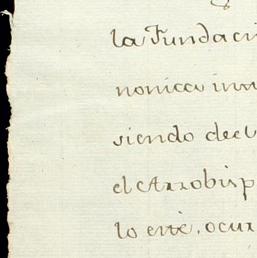 la Fundaci
nonica in
siendo decl
el Arzobisp
lo esté, ocur